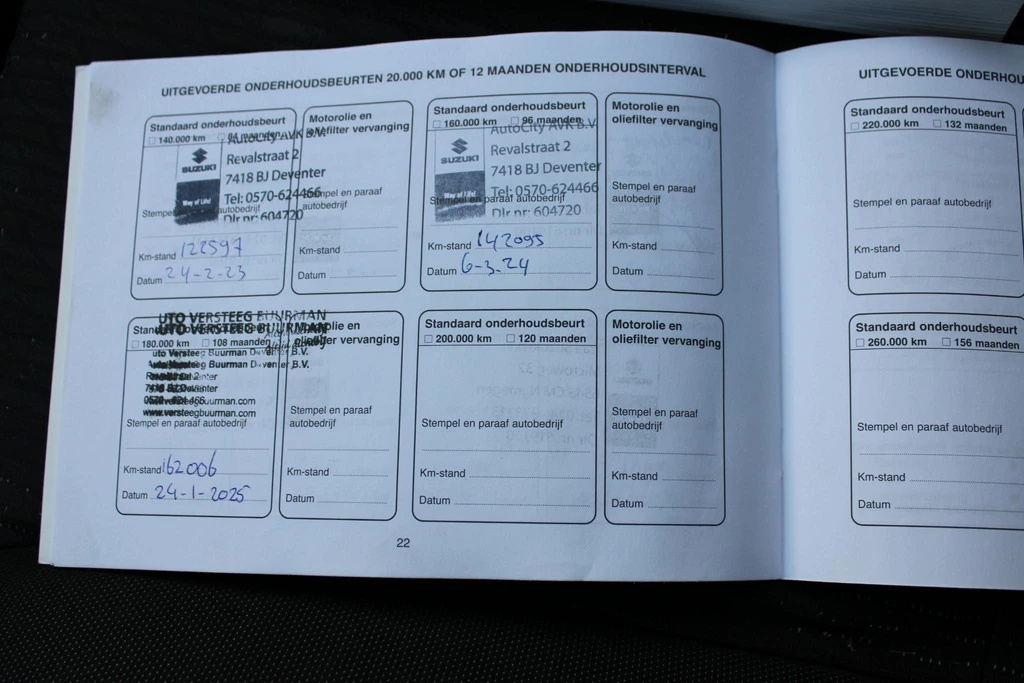 UITGEVOERDE ONDERHOUDSBEURTEN 20.000 KM OF 12 MAANDEN ONDERHOUDSINTERVAL
Standaard onderhoudsbeurt
140.000 km 84 maanden
AutoCity AVK B.V.
SUZUKI
Way of Life!
Revalstraat 2
7418 BJ Deventer
Tel: 0570-624466
Dlr nr: 604720
Stempel autobedrijf
Km-stand 122597
Datum 24-2-23
Motorolie en
oliefilter vervanging
Stempel en paraaf
autobedrijf
Km-stand
Datum
Standaard onderhoudsbeurt
160.000 km 96 maanden
AutoCity AVK B.V.
SUZUKI
Way of Life!
Revalstraat 2
7418 BJ Deventer
Tel: 0570-624466
Dlr nr: 604720
Stempel en paraaf autobedrijf
Km-stand 142095
Datum 6-3-24
Motorolie en
oliefilter vervanging
Stempel en paraaf
autobedrijf
Km-stand
Datum
UTO VERSTEEG BUURMAN
UTO VERSTEEG BUURMAN
180.000 km 108 maanden
uto Versteeg Buurman Deventer B.V.
Versteeg Buurman Deventer B.V.
www.versteegbuurman.com
Stempel en paraaf autobedrijf
Km-stand 162006
Datum 24-1-2025
Motorolie en
oliefilter vervanging
Stempel en paraaf
autobedrijf
Km-stand
Datum
Standaard onderhoudsbeurt
200.000 km 120 maanden
Stempel en paraaf autobedrijf
Km-stand
Datum
Motorolie en
oliefilter vervanging
Stempel en paraaf
autobedrijf
Km-stand
Datum
22
UITGEVOERDE ONDERHOU
Standaard onderhoudsbeurt
220.000 km 132 maanden
Stempel en paraaf autobedrijf
Km-stand
Datum
Standaard onderhoudsbeurt
260.000 km 156 maanden
Stempel en paraaf autobedrijf
Km-stand
Datum